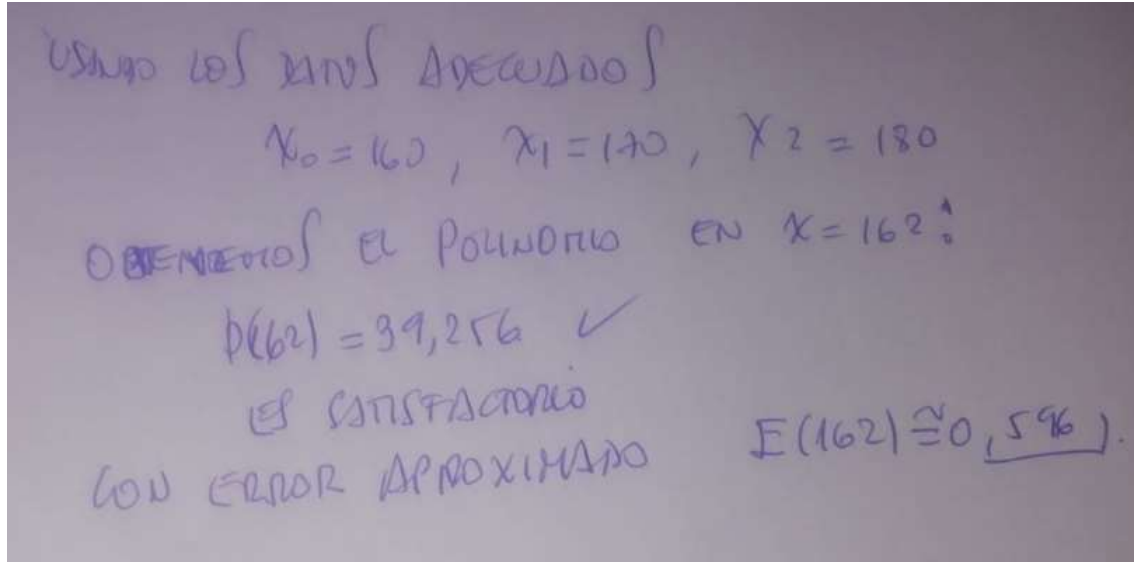 USANDO LOS DATOS ADECUADOS
X₀ = 160, X₁ = 170, X₂ = 180
OBTENEMOS EL POLINOMIO EN X = 162:
p(162) = 39,256 ✓
ES SATISFACTORIO
CON ERROR APROXIMADO E(162) ≅ 0,596).